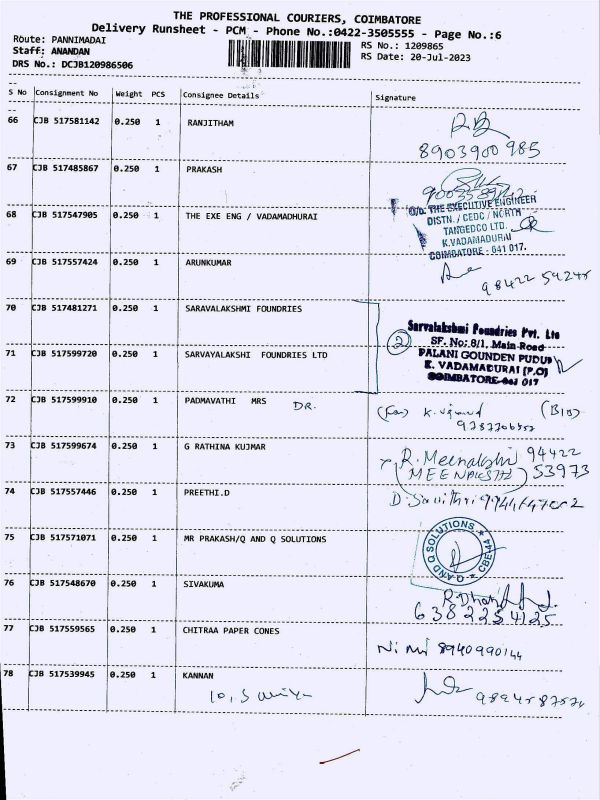 THE PROFESSIONAL COURIERS, COIMBATORE
Delivery Runsheet - PCM - Phone No.:0422-3505555 - Page No.:6
Route: PANNIMADAI
RS No.: 1209865
Staff: ANANDAN
RS Date: 20-Jul-2023
DRS No.: DCJB120986506
S No Consignment No Weight PCS Consignee Details Signature
66 CJB 517581142 0.250 1 RANJITHAM
8903900985
67 CJB 517485867 0.250 1 PRAKASH
O/o. THE EXECUTIVE ENGINEER
68 CJB 517547905 0.250 1 THE EXE ENG / VADAMADHURAI DISTN. / CEDC / NORTH
TANGEDCO LTD.
K.VADAMADURAI
COIMBATORE - 641 017.
69 CJB 517557424 0.250 1 ARUNKUMAR
70 CJB 517481271 0.250 1 SARAVALAKSHMI FOUNDRIES
Sarvalakshmi Foundries Pvt. Ltd
2 SF. No: 8/1, Main Road
71 CJB 517599720 0.250 1 SARVAYALAKSHI FOUNDRIES LTD PALANI GOUNDEN PUDUR
K. VADAMADURAI (P.O)
COIMBATORE-641 017
72 CJB 517599910 0.250 1 PADMAVATHI MRS DR.
73 CJB 517599674 0.250 1 G RATHINA KUJMAR R. Meenakshi 94422
MEENAKSHI 53973
74 CJB 517557446 0.250 1 PREETHI.D
D. Savithri
75 CJB 517571071 0.250 1 MR PRAKASH/Q AND Q SOLUTIONS Q AND Q SOLUTIONS * CBE-44 *
76 CJB 517548670 0.250 1 SIVAKUMA
6382254125
77 CJB 517559565 0.250 1 CHITRAA PAPER CONES
8940990144
78 CJB 517539945 0.250 1 KANNAN